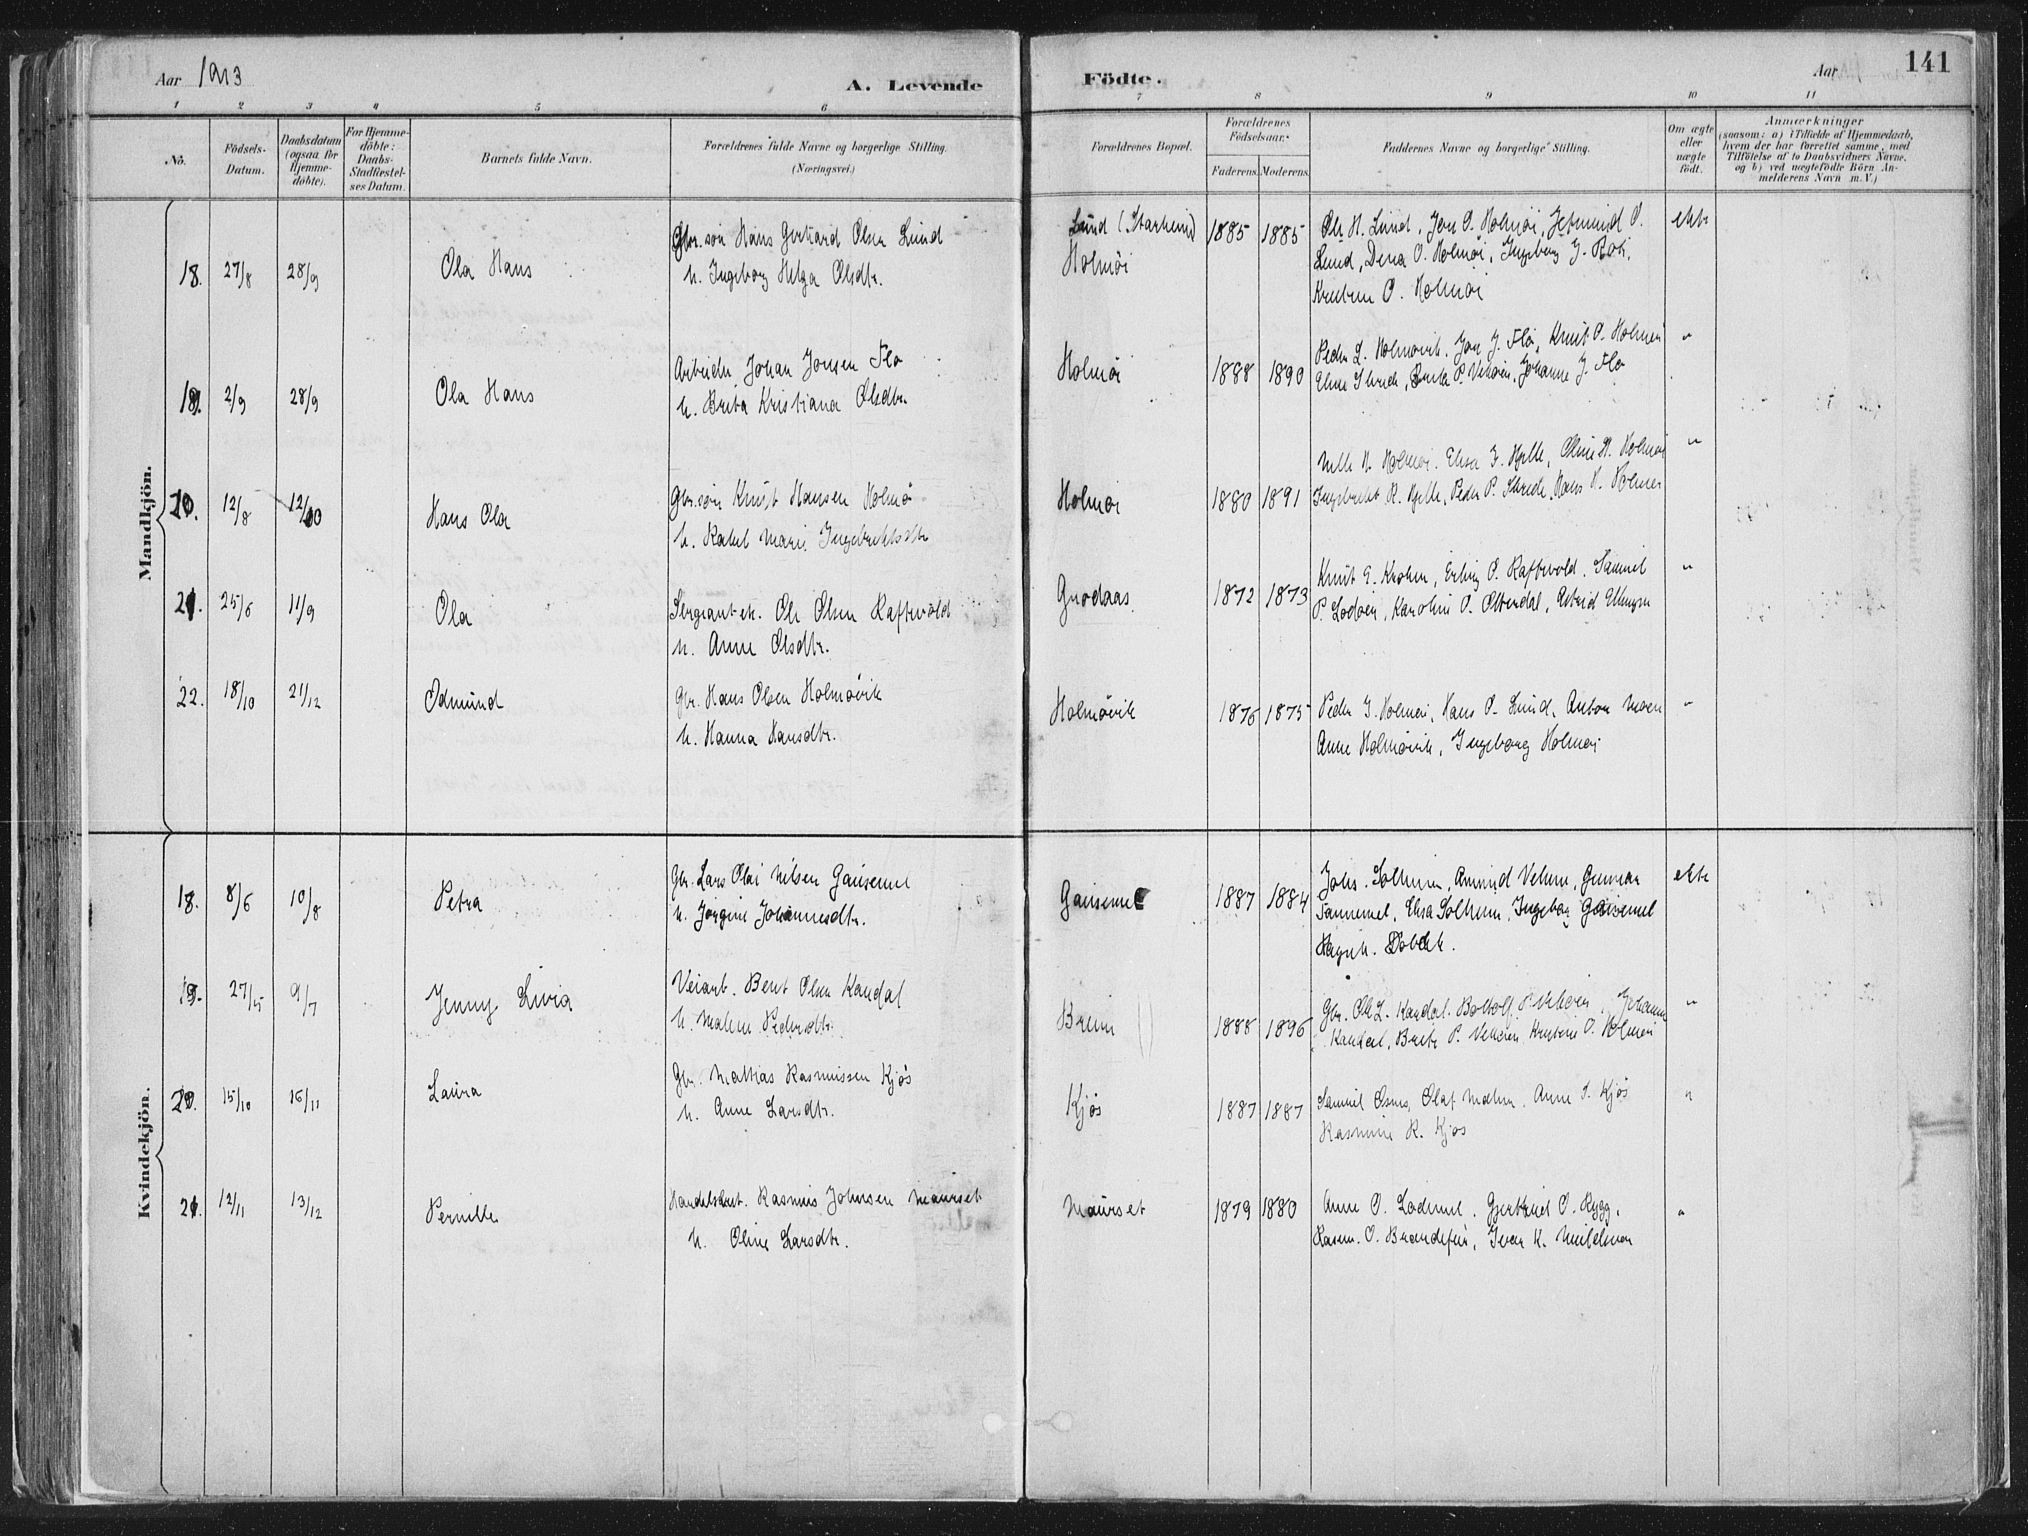 Aar 1913
A. Levende
Födte.
Aar
141
1 2 3 4 5 6 7 8 9 10 11
No.
Födsels-
Datum.
Daabsdatum
(ogsaa for
Hjemme-
döbte).
For Hjemme-
döbte:
Daabs-
Stadfæstel-
ses Datum.
Barnets fulde Navn.
Forældrenes fulde Navne og borgerlige Stilling.
(Næringsvei.)
Forældrenes Bopæl.
Forældrenes
Födselsaar.
Faderens. Moderens.
Faddernes Navne og borgerlige Stilling.
Om ægte
eller
uægte
födt.
Anmærkninger
(saasom: a) i Tilfælde af Hjemmedaab,
hvem der har forrettet samme, med
Tilföielse af to Daabsvidners Navne,
og b) ved uægtefödte Börn An-
melderens Navn m. V.)
Mandkjön.
18. 27/8 28/9 Ola Hans
Gbr.søn Hans Gerhard Olsen Lund
h. Ingeborg Helga Olsdtr.
Lund (Starheim)
Holmøi
1885 1885
Ole H. Lund, Jon O. Holmøi, Jetmund O.
Lund, Dena O. Holmøi, Ingeborg J.
O. Holmøi
ekte
19. 2/9 28/9 Ola Hans
Arbeider Johan Jonsen Flo
h. Brita Kristiana Olsdtr.
Holmøi
1888 1890
Peder L. Holmøvik, Jon J. Flo, Knut O. Holmøi
P. Johanne J. Flo
"
20. 12/8 12/10 Hans Ola
Gbr.søn Knut Hansen Holmø
h. Rakel Marie Ingebrektsdtr
Holmøi
1880 1891
H. Holmøi, Elisa I. Hjelle, Oline H. Holmøi
Ingebrekt R. Hjelle, Peder P. Hans H. Holmøi
"
21. 25/6 11/9 Ola
Sergeant Ole Olsen Raftevold
h. Anne Olsdtr.
Grodaas
1872 1873
Knut E. Erling O. Raftevold, Samuel
P. Lødøen, Karoline O. Otterdal, Astrid
"
22. 18/10 21/12 Odmund
Gbr. Hans Olsen Holmøvik
h. Hanna Hansdtr.
Holmøvik
1876 1875
Peder I. Holmøi, Hans O. Lund, Anton Moen
Anne Holmøvik, Ingeborg Holmøi
"
Kvindekjön.
18. 8/6 10/8 Petra
Gbr. Lars Olai Nilsen Gausemel
h. Jørgine Johannesdtr.
Gausemel
1887 1884
Johs. Solheim, Amund Gunnar
Elisa Solheim, Ingeborg Gausemel
ekte
19. 27/5 9/7 Jenny Livia
Veiarb. Bent Olsen Kandal
h. Malene Pedersdtr.
Breim
1888 1896
Gbr. Ole L. Kandal. Botolf P. Johanne
Kandal, Brite P. Kristine O. Holmøi
"
20. 15/10 16/11 Laura
Gbr. Mathias Rasmussen Kjøs
h. Anne Larsdtr.
Kjøs
1887 1887
Samuel Osnes, Olaf Anne Kjøs
Rasmine R. Kjøs
"
21. 12/11 13/12 Pernille
Rasmus Johnsen Maurset
h. Oline Larsdtr.
Maurset
1879 1880
Anne O. Gjertrud O. Rygg.
Rasm. O. Ivar K.
"